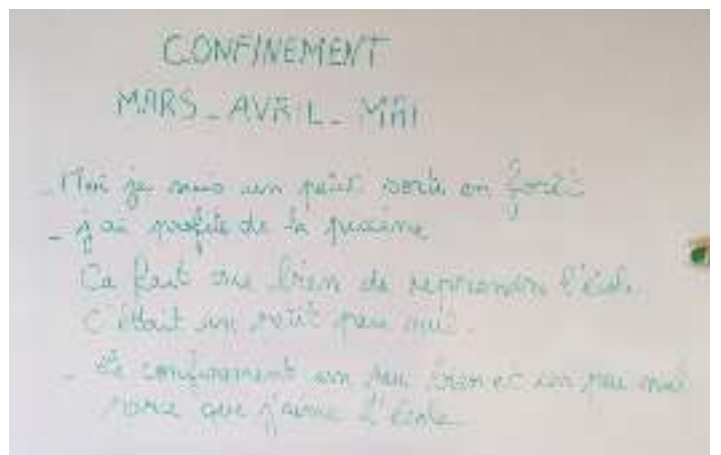 CONFINEMENT
MARS_AVRIL_MAI
_ Moi je suis un petit sorti en forêt
_ j'ai profité de la piscine
Ca fait du bien de reprendre l'école
C'était un petit peu nul.
_ Le confinement un peu bien et un peu nul
parce que j'aime l'école